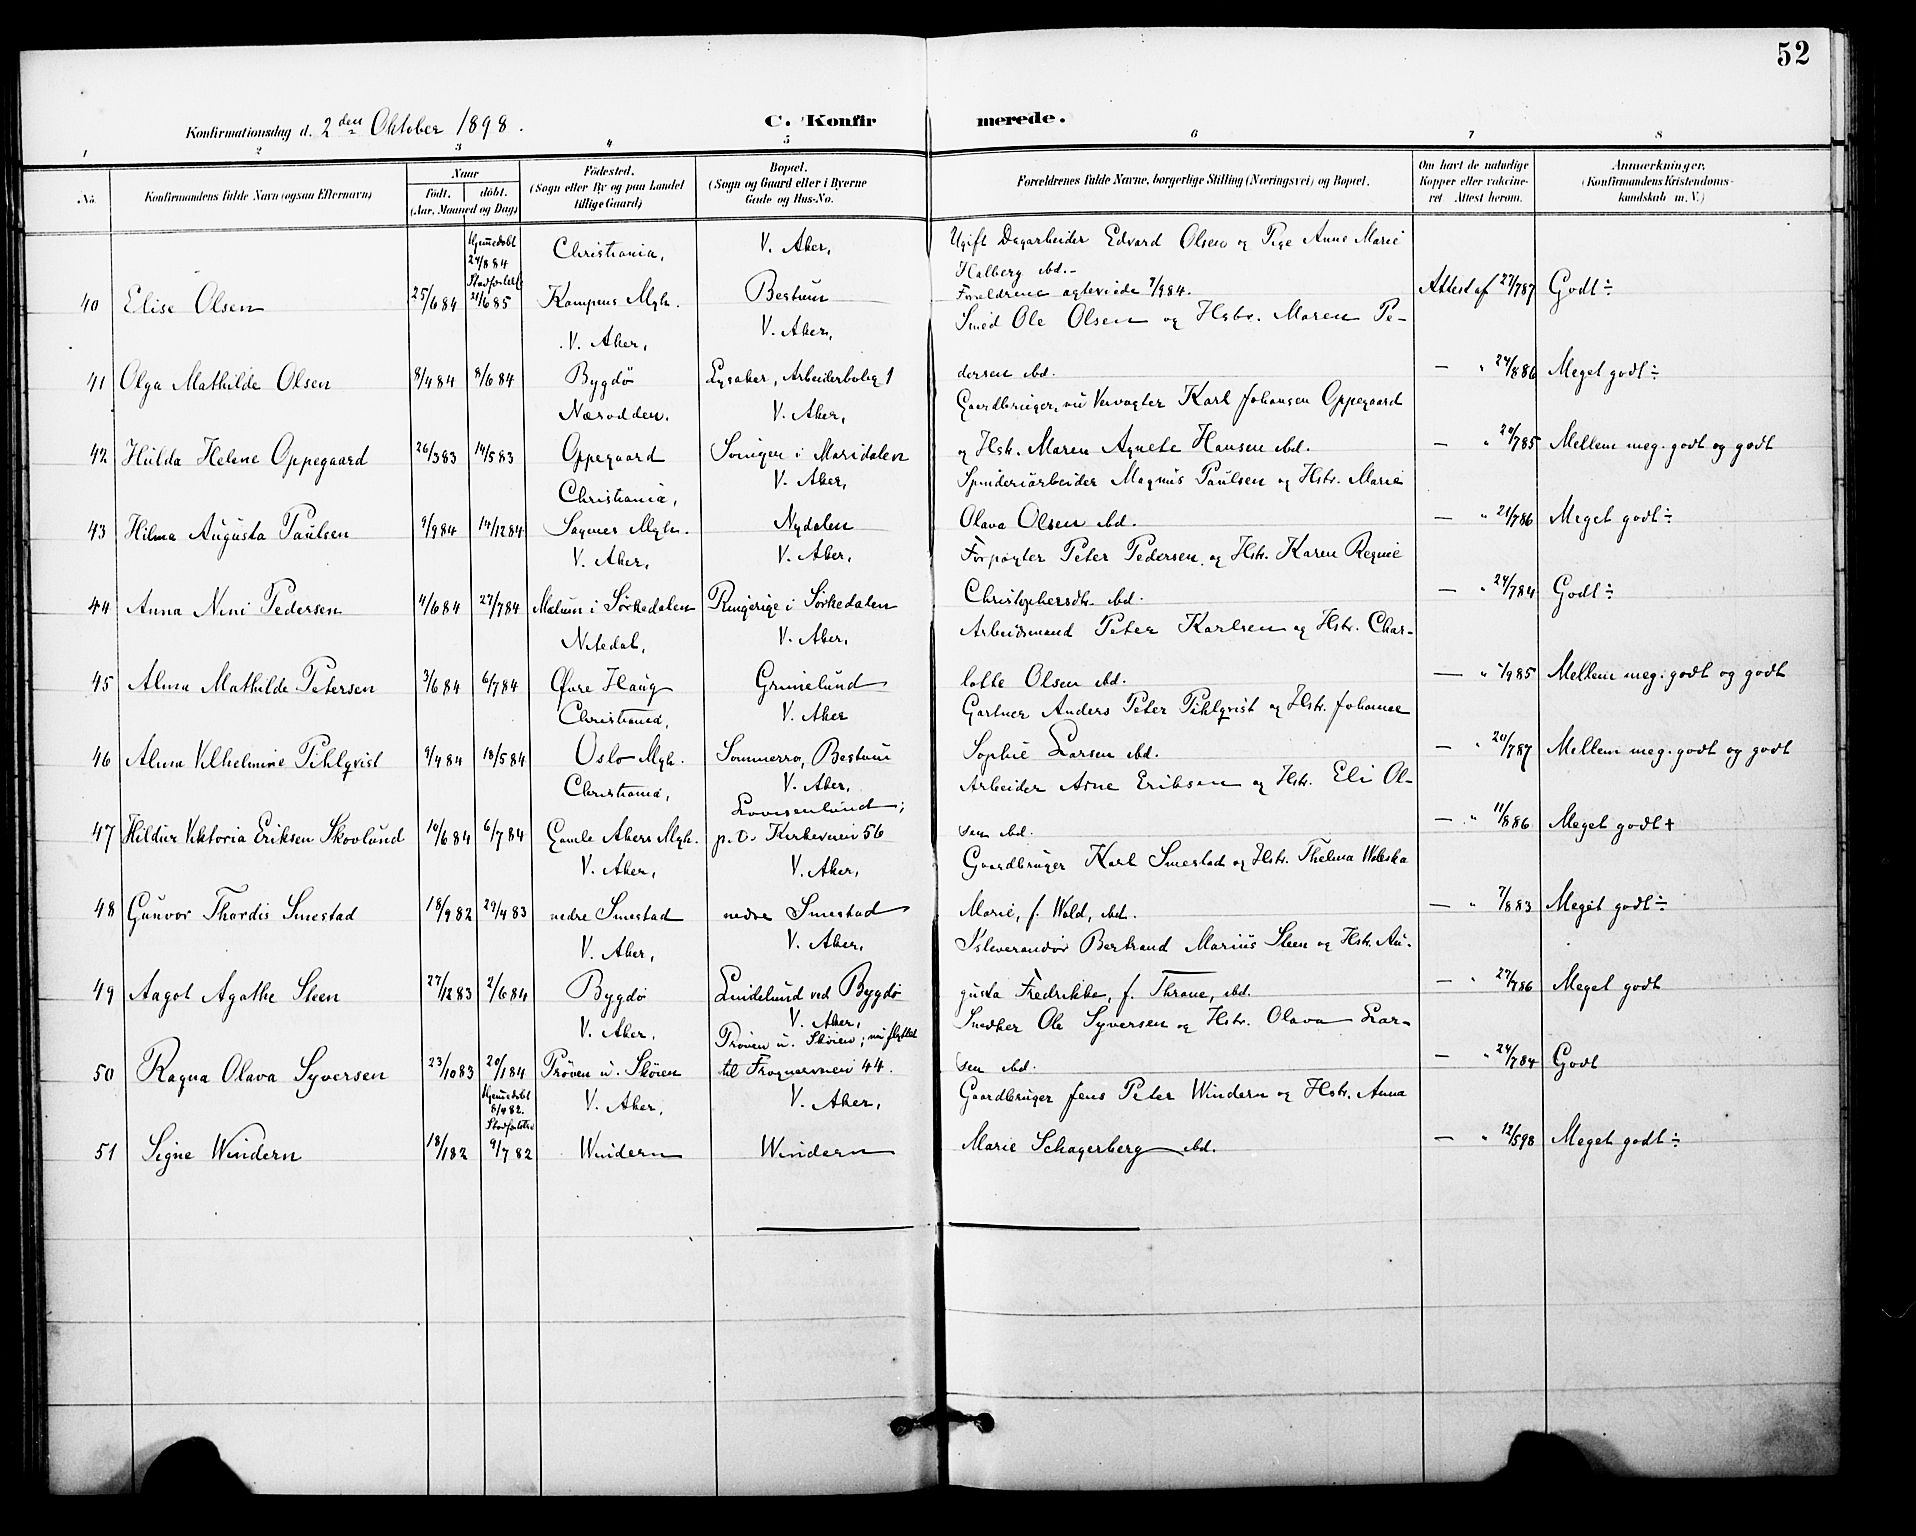 52
Konfirmationsdag d. 2den Oktober 1898.
C. Konfirmerede.
1 2 3 4 5 6 7 8
No.
Konfirmandens fulde Navn (ogsaa Efternavn)
Naar
født. døbt.
(Aar, Maaned og Dag)
Fødested.
(Sogn eller By og paa Landet
tillige Gaard)
Bopæl.
(Sogn og Gaard eller i Byerne
Gade og Hus-No.
Forældrenes fulde Navne, borgerlige Stilling (Næringsvei) og Bopæl.
Om havt de naturlige
Kopper eller vakcine-
ret Attest herom.
Anmærkninger,
(Konfirmandens Kristendoms-
kundskab m. V.)
Hjemmedøbt 24/8 84 Christiania, V. Aker, Ugift Dagarbeider Edvard Olsen og Pige Anne Marie
Halberg ibd.-
40 Elise Olsen 25/6 84 21/6 85 Kampens Mgh. Bestum Forældrene ægteviede 7/9 84. Attest af 27/7 87 Godt ÷
V. Aker, V. Aker, Smed Ole Olsen og Hstr. Maren Pe-
41 Olga Mathilde Olsen 8/4 84 8/6 84 Bygdø Lysaker, Arbeiderbolig 1 dersen ibd. — " 24/8 86 Meget godt ÷
Næsodden. V. Aker, Gaardbruger, nu Vervogter Karl Johansen Oppegaard
42 Hulda Helene Oppegaard 26/3 83 14/5 83 Oppegaard Svingen i Maridalen og Hstr. Maren Agnete Hansen ibd. — " 20/7 85 Mellem meg. godt og godt
Christiania, V. Aker, Spinderiarbeider Magnus Paulsen og Hstr. Marie
43 Hilma Augusta Paulsen 9/9 84 14/12 84 Sagenes Mgh. Nydalen Olava Olsen ibd. — " 21/7 86 Meget godt ÷
V. Aker, V. Aker, Forpagter Peter Pedersen og Hstr. Karen Regine
44 Anna Nini Pedersen 4/6 84 27/7 84 Mælum i Sørkedalen Ringerige i Sørkedalen Christophersdtr. ibd. — " 24/7 84 Godt ÷
Nitedal, V. Aker, Arbeidsmand Peter Karlsen og Hstr. Char-
45 Alma Mathilde Petersen 3/6 84 6/7 84 Øvre Haug Grimelund lotte Olsen ibd. — " /9 85 Mellem meg. godt og godt
Christiania, V. Aker Gartner Anders Peter Pihlqvist og Hstr. Johanne
46 Alma Vilhelmine Pihlqvist 9/4 84 18/5 84 Oslo Mgh. Sommerro, Bestum Sophie Larsen ibd. — " 20/7 87 Mellem meg. godt og godt
Christiania, V. Aker, Arbeider Arne Eriksen og Hstr. Eli Ol-
Lovisenlund;
47 Hildur Viktoria Eriksen Skovlund 10/6 84 6/7 84 Gamle Akers Mgh. p. o. Kirkeveien 56 sen ibd. — " 11/8 86 Meget godt +
V. Aker, V. Aker, Gaardbruger Karl Smestad og Hstr. Thelma Waleska
48 Gunvor Thordis Smestad 18/9 82 29/4 83 nedre Smestad nedre Smestad Marie, f. Wold, ibd. — " 7/8 83 Meget godt ÷
V. Aker, V. Aker, Isleverandør Bertrand Marius Steen og Hstr. Au-
49 Aagot Agathe Steen 27/12 83 2/6 84 Bygdø Lindelund ved Bygdø gusta Fredrikke, f. Thrane, ibd. — " 27/7 86 Meget godt
V. Aker, V. Aker, Snedker Ole Syversen og Hstr. Olava Lar-
Prøven u. Skøien; nu flyttet
50 Ragna Olava Syversen 23/10 83 20/1 84 Prøven u. Skøien til Frognerveien 44. sen ibd. — " 24/7 84 Godt
Hjemmedøbt 8/4 82. V. Aker, V. Aker, Gaardbruger Jens Peter Windern og Hstr. Anna
51 Signe Windern 18/1 82 9/7 82 Windern Windern Marie Schagerberg ibd. — " 12/5 98 Meget godt ÷